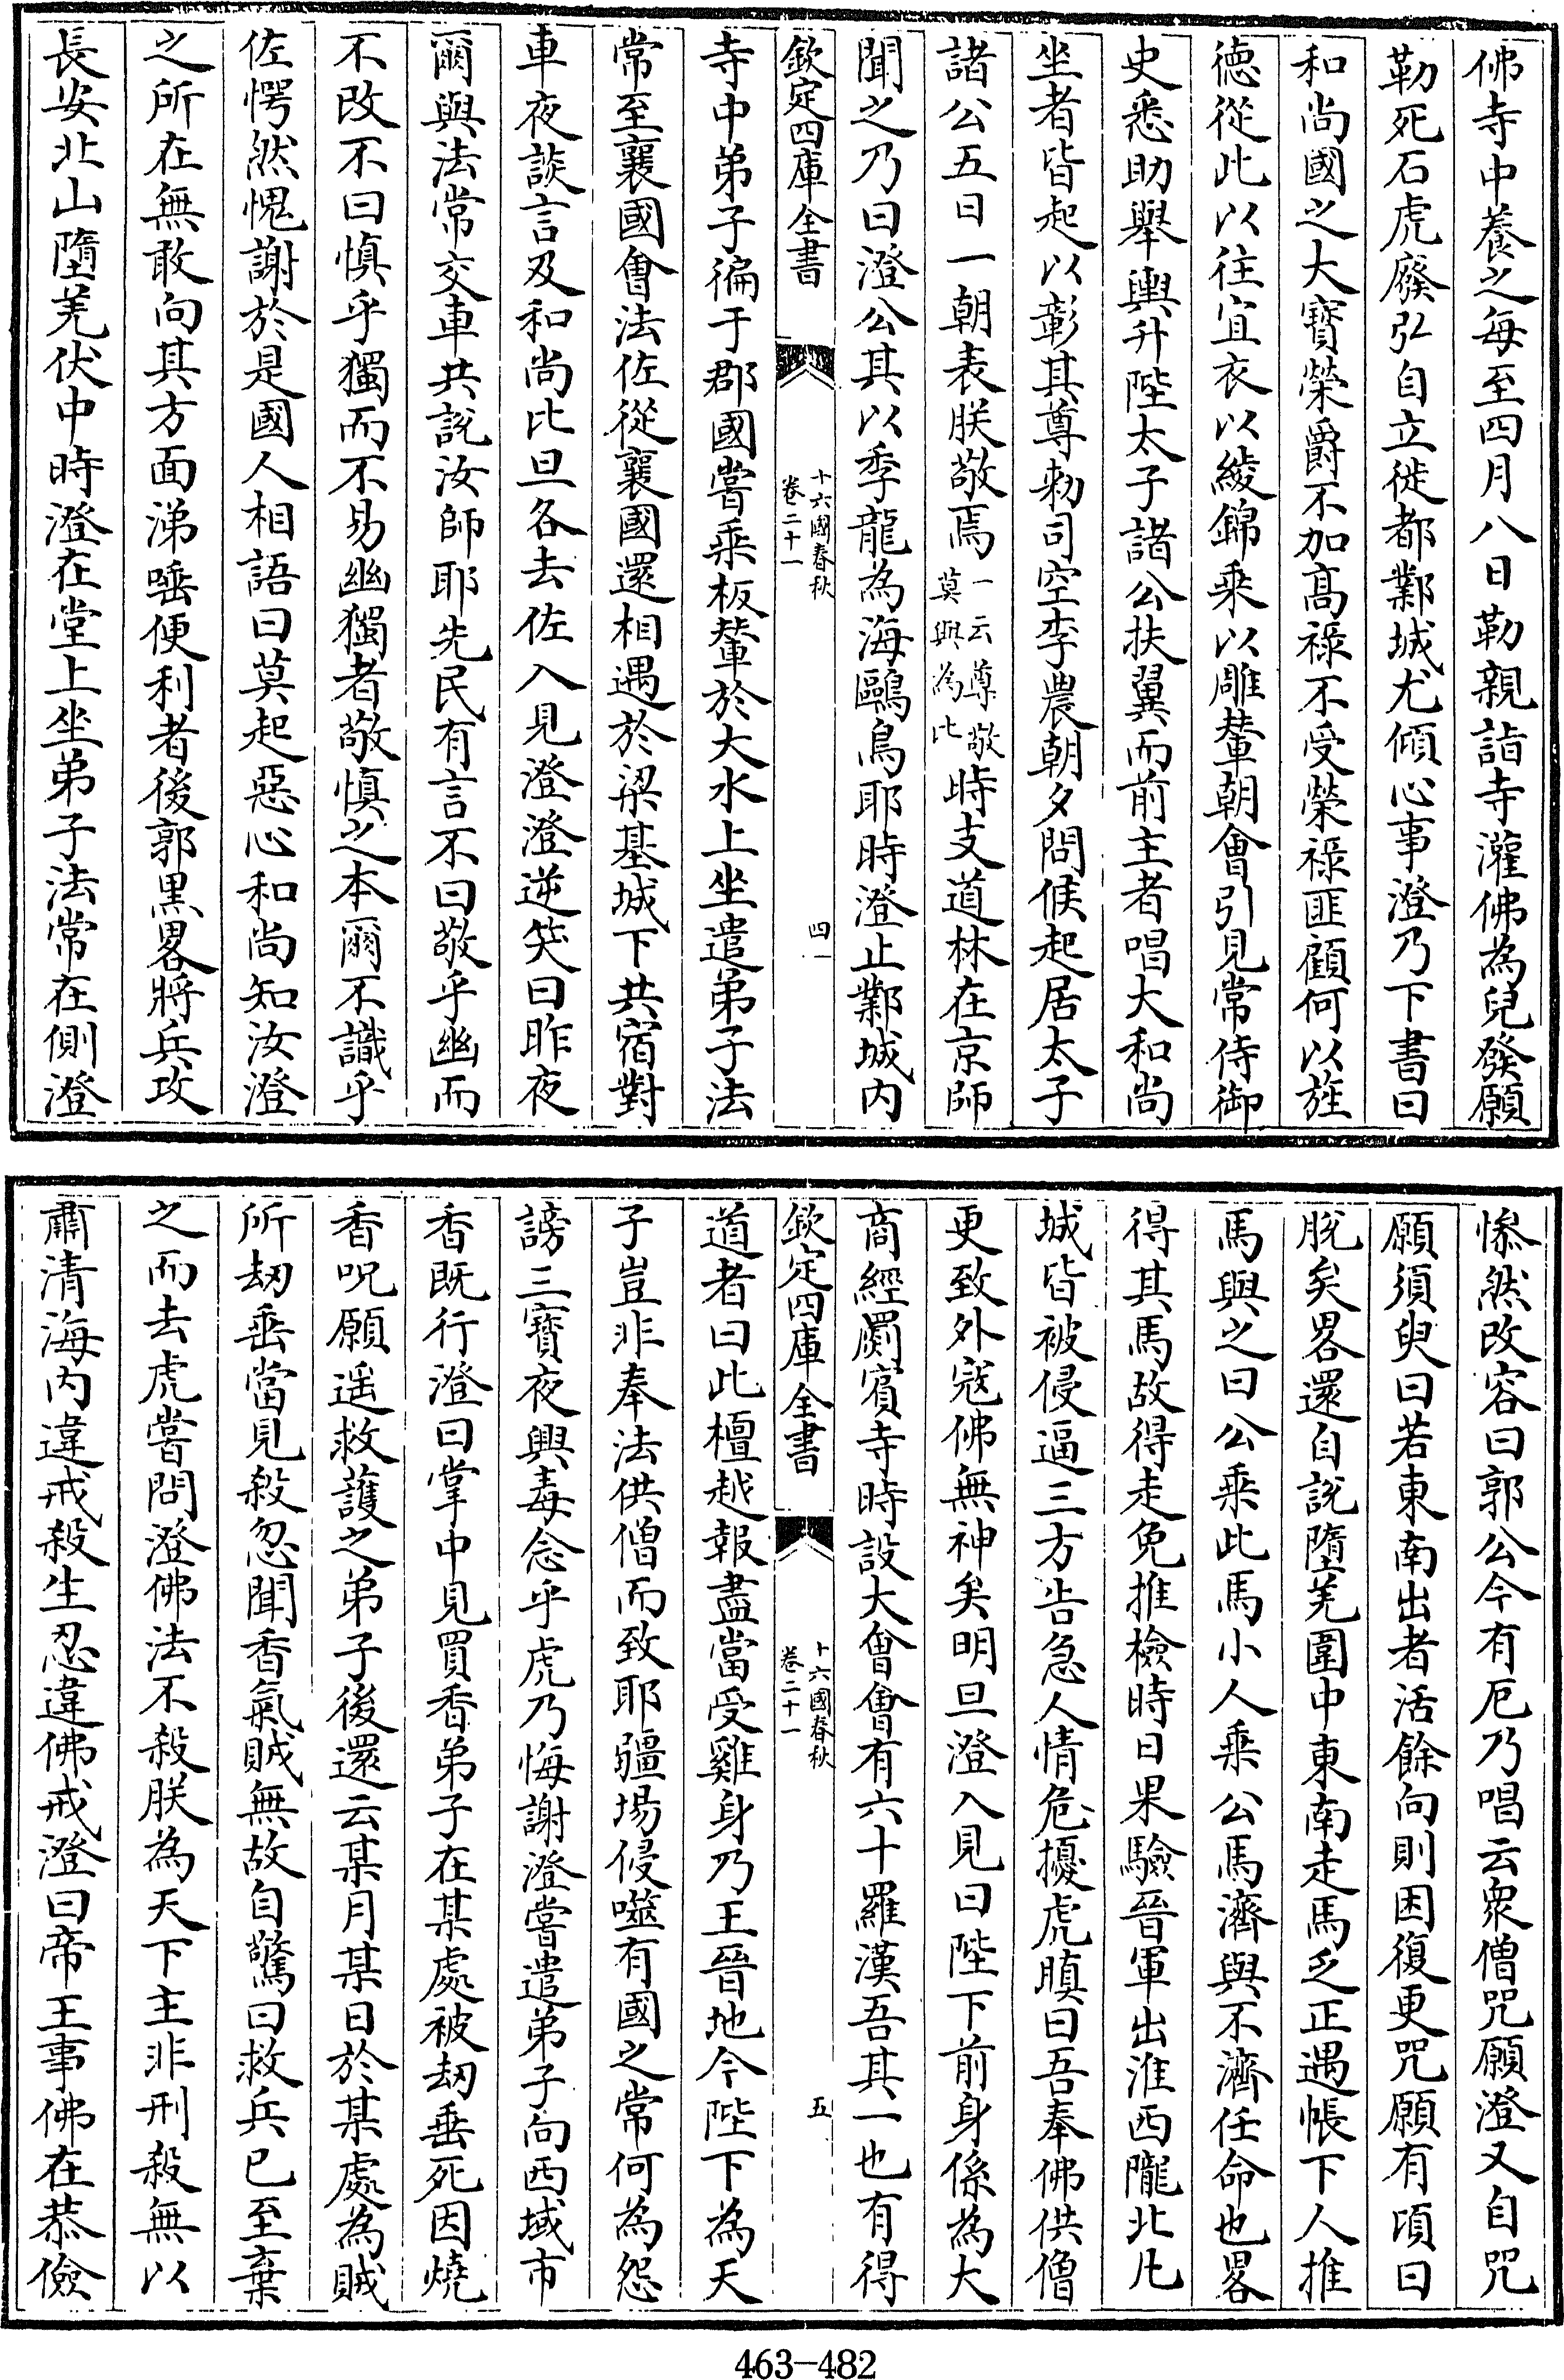 佛寺中養之每至四月八日勒親詣寺灌佛為兒發願
勒死石虎廢弘自立徙都鄴城尤傾心事澄乃下書曰
和尚國之大寶榮爵不加髙祿不受榮祿匪顧何以旌
德從此以往宜衣以綾錦乗以雕輦朝會引見常侍御
史悉助舉輿升陛太子諸公扶翼而前主者唱大和尚
坐者皆起以彰其尊勑司空李農朝夕問候起居太子
諸公五日一朝表朕敬焉一云尊敬莫與為比時支道林在京師
聞之乃曰澄公其以季龍為海鷗鳥耶時澄止鄴城内
欽定四庫全書
十六國春秋
卷二十一
四
寺中弟子徧于郡國嘗乗板輦於大水上坐遣弟子法
常至襄國會法佐從襄國還相遇於梁基城下共宿對
車夜談言及和尚比旦各去佐入見澄澄逆笑曰昨夜
爾與法常交車共說汝師耶先民有言不曰敬乎幽而
不改不曰慎乎獨而不易幽獨者敬慎之本爾不識乎
佐愕然愧謝於是國人相語曰莫起惡心和尚知汝澄
之所在無敢向其方面涕唾便利者後郭黒畧將兵攻
長安北山墮羌伏中時澄在堂上坐弟子法常在側澄
慘然改容曰郭公今有厄乃唱云衆僧咒願澄又自咒
願須臾曰若東南出者活餘向則困復更咒願有頃曰
脫矣畧還自說墮羌圍中東南走馬乏正遇帳下人推
馬與之曰公乗此馬小人乗公馬濟與不濟任命也畧
得其馬故得走免推檢時日果驗晉軍出淮西隴北凡
城皆被侵逼三方告急人情危擾虎瞋曰吾奉佛供僧
更致外寇佛無神矣明旦澄入見曰陛下前身係為大
商經罽賓寺時設大會會有六十羅漢吾其一也有得
欽定四庫全書
十六國春秋
卷二十一
五
道者曰此檀越報盡當受雞身乃王晉地今陛下為天
子豈非奉法供僧而致耶疆場侵噬有國之常何為怨
謗三寶夜興毒念乎虎乃悔謝澄嘗遣弟子向西域市
香既行澄曰掌中見買香弟子在某處被刼垂死因燒
香呪願遥救護之弟子後還云某月某日於某處為賊
所刼垂當見殺忽聞香氣賊無故自驚曰救兵已至棄
之而去虎嘗問澄佛法不殺朕為天下主非刑殺無以
肅清海内違戒殺生忍違佛戒澄曰帝王事佛在恭儉
463-482